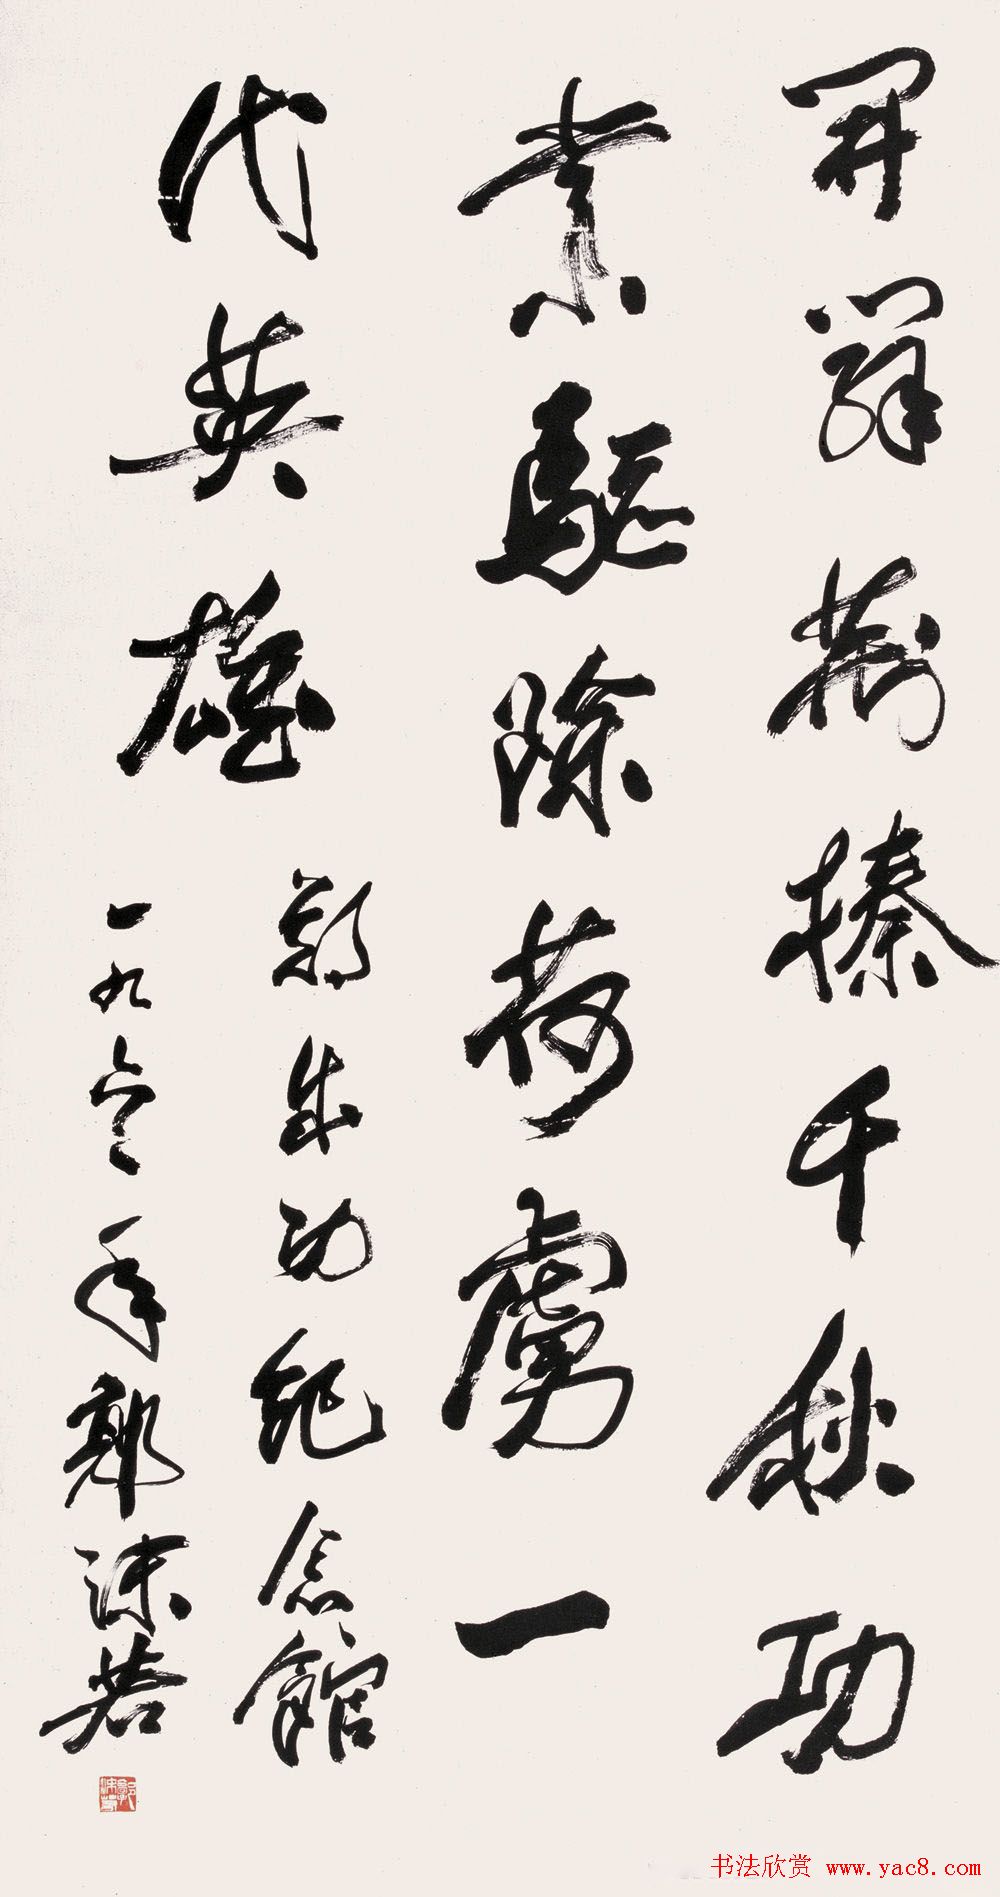 開辟荊榛千秋功
業驅除荷虜一
代英雄
鄭成功紀念館
一九六二年郭沫若
郭沫若
书法欣赏 www.yac8.com